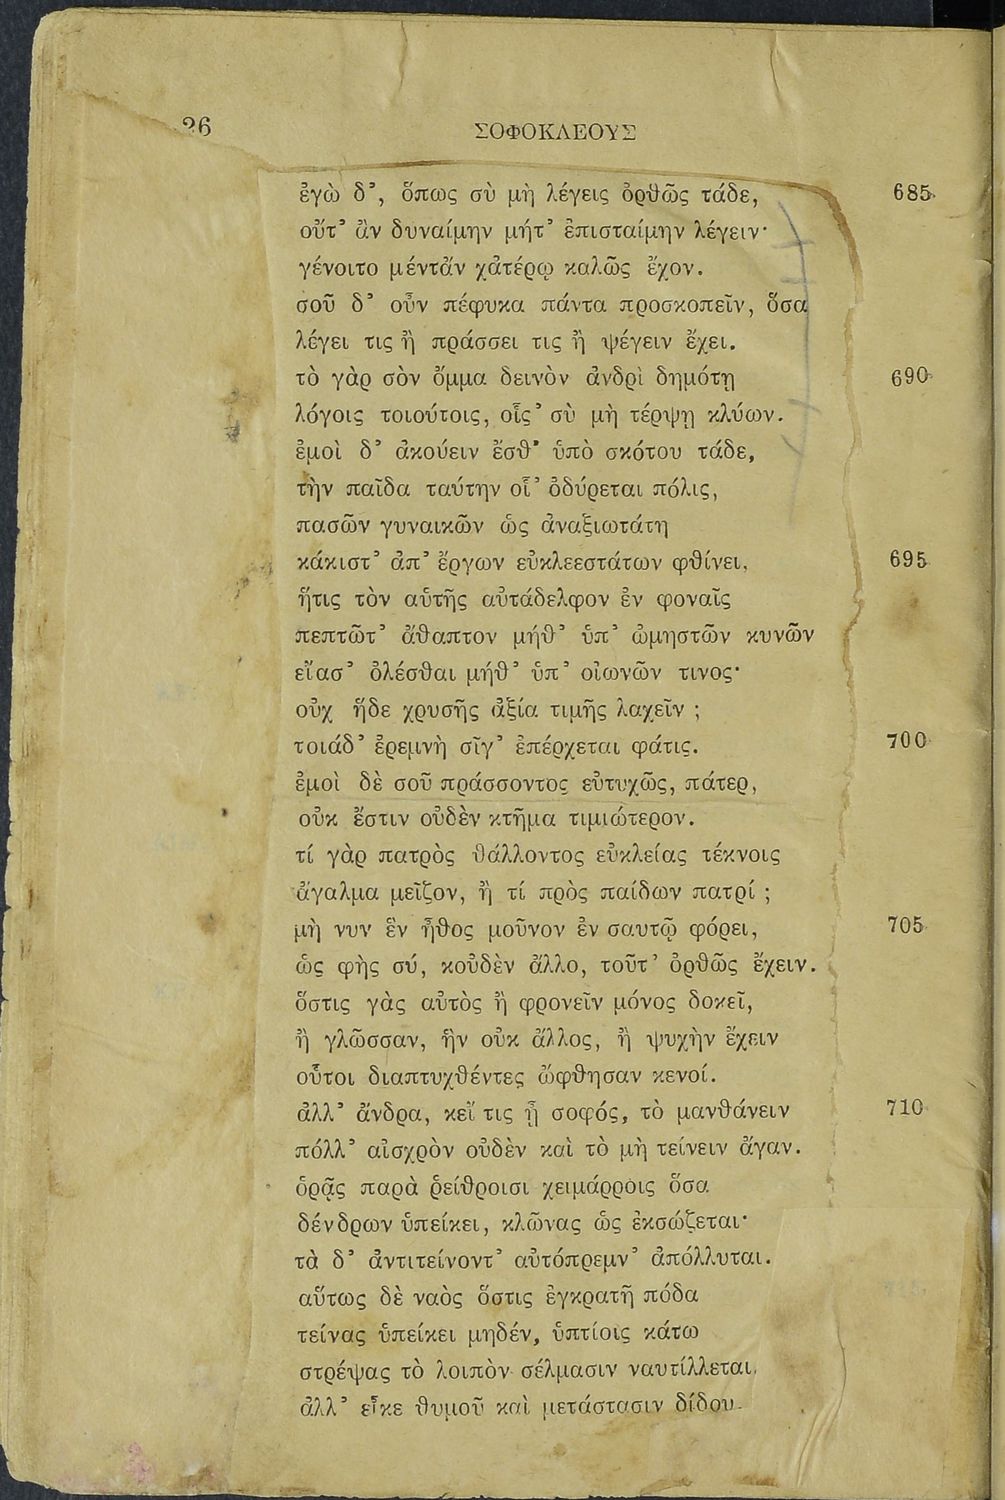 26 ΣΟΦΟΚΛΕΟΥΣ
ἐγὼ δ᾽, ὅπως σὺ μὴ λέγεις ὀρθῶς τάδε, 685
οὔτ᾽ ἂν δυναίμην μήτ᾽ ἐπισταίμην λέγειν·
γένοιτο μέντἂν χἀτέρῳ καλῶς ἔχον.
σοῦ δ᾽ οὖν πέφυκα πάντα προσκοπεῖν, ὅσα
λέγει τις ἢ πράσσει τις ἢ ψέγειν ἔχει.
τὸ γὰρ σὸν ὄμμα δεινὸν ἀνδρὶ δημότῃ 690
λόγοις τοιούτοις, οἷς᾽ σὺ μὴ τέρψῃ κλύων.
ἐμοὶ δ᾽ ἀκούειν ἔσθ᾽ ὑπὸ σκότου τάδε,
τὴν παῖδα ταύτην οἷ᾽ ὀδύρεται πόλις,
πασῶν γυναικῶν ὡς ἀναξιωτάτη
κάκιστ᾽ ἀπ᾽ ἔργων εὐκλεεστάτων φθίνει, 695
ἥτις τὸν αὑτῆς αὐτάδελφον ἐν φοναῖς
πεπτῶτ᾽ ἄθαπτον μήθ᾽ ὑπ᾽ ὠμηστῶν κυνῶν
εἴασ᾽ ὀλέσθαι μήθ᾽ ὑπ᾽ οἰωνῶν τινος·
οὐχ ἥδε χρυσῆς ἀξία τιμῆς λαχεῖν ;
τοιάδ᾽ ἐρεμνὴ σῖγ᾽ ἐπέρχεται φάτις. 700
ἐμοὶ δὲ σοῦ πράσσοντος εὐτυχῶς, πάτερ,
οὐκ ἔστιν οὐδὲν κτῆμα τιμιώτερον.
τί γὰρ πατρὸς θάλλοντος εὐκλείας τέκνοις
ἄγαλμα μεῖζον, ἢ τί πρὸς παίδων πατρί ;
μὴ νυν ἓν ἦθος μοῦνον ἐν σαυτῷ φόρει, 705
ὡς φὴς σύ, κοὐδὲν ἄλλο, τοῦτ᾽ ὀρθῶς ἔχειν.
ὅστις γὰς αὐτὸς ἢ φρονεῖν μόνος δοκεῖ,
ἢ γλῶσσαν, ἣν οὐκ ἄλλος, ἢ ψυχὴν ἔχειν
οὗτοι διαπτυχθέντες ὤφθησαν κενοί.
ἀλλ᾽ ἄνδρα, κεἴ τις ᾖ σοφός, τὸ μανθάνειν 710
πόλλ᾽ αἰσχρὸν οὐδὲν καὶ τὸ μὴ τείνειν ἄγαν.
ὁρᾷς παρὰ ῥείθροισι χειμάρροις ὅσα
δένδρων ὑπείκει, κλῶνας ὡς ἐκσώζεται·
τὰ δ᾽ ἀντιτείνοντ᾽ αὐτόπρεμν᾽ ἀπόλλυται.
αὔτως δὲ ναὸς ὅστις ἐγκρατῆ πόδα
τείνας ὑπείκει μηδέν, ὑπτίοις κάτω
στρέψας τὸ λοιπὸν σέλμασιν ναυτίλλεται.
ἀλλ᾽ εἶκε θυμοῦ καὶ μετάστασιν δίδου.